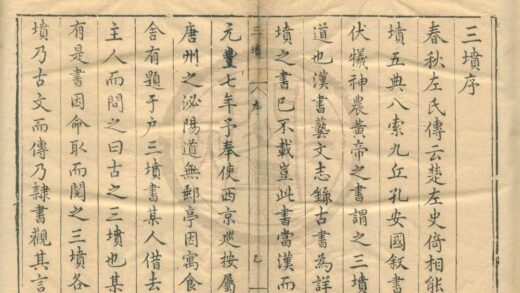 三墳序
春秋左氏傳云楚左史倚相能
墳五典八索九丘孔安國叙書
伏犧神農黃帝之書謂之三墳
道也漢書藝文志錄古書為詳
墳之書已不載豈此書當漢而
三墳 序
元豐七年予奉使西京廵按屬
唐州之泌陽道無郵亭因寓食
舍有題于户三墳書某人借去
主人而問之曰古之三墳也某
有是書因命取而閱之三墳各
墳乃古文而傳乃隸書觀其言